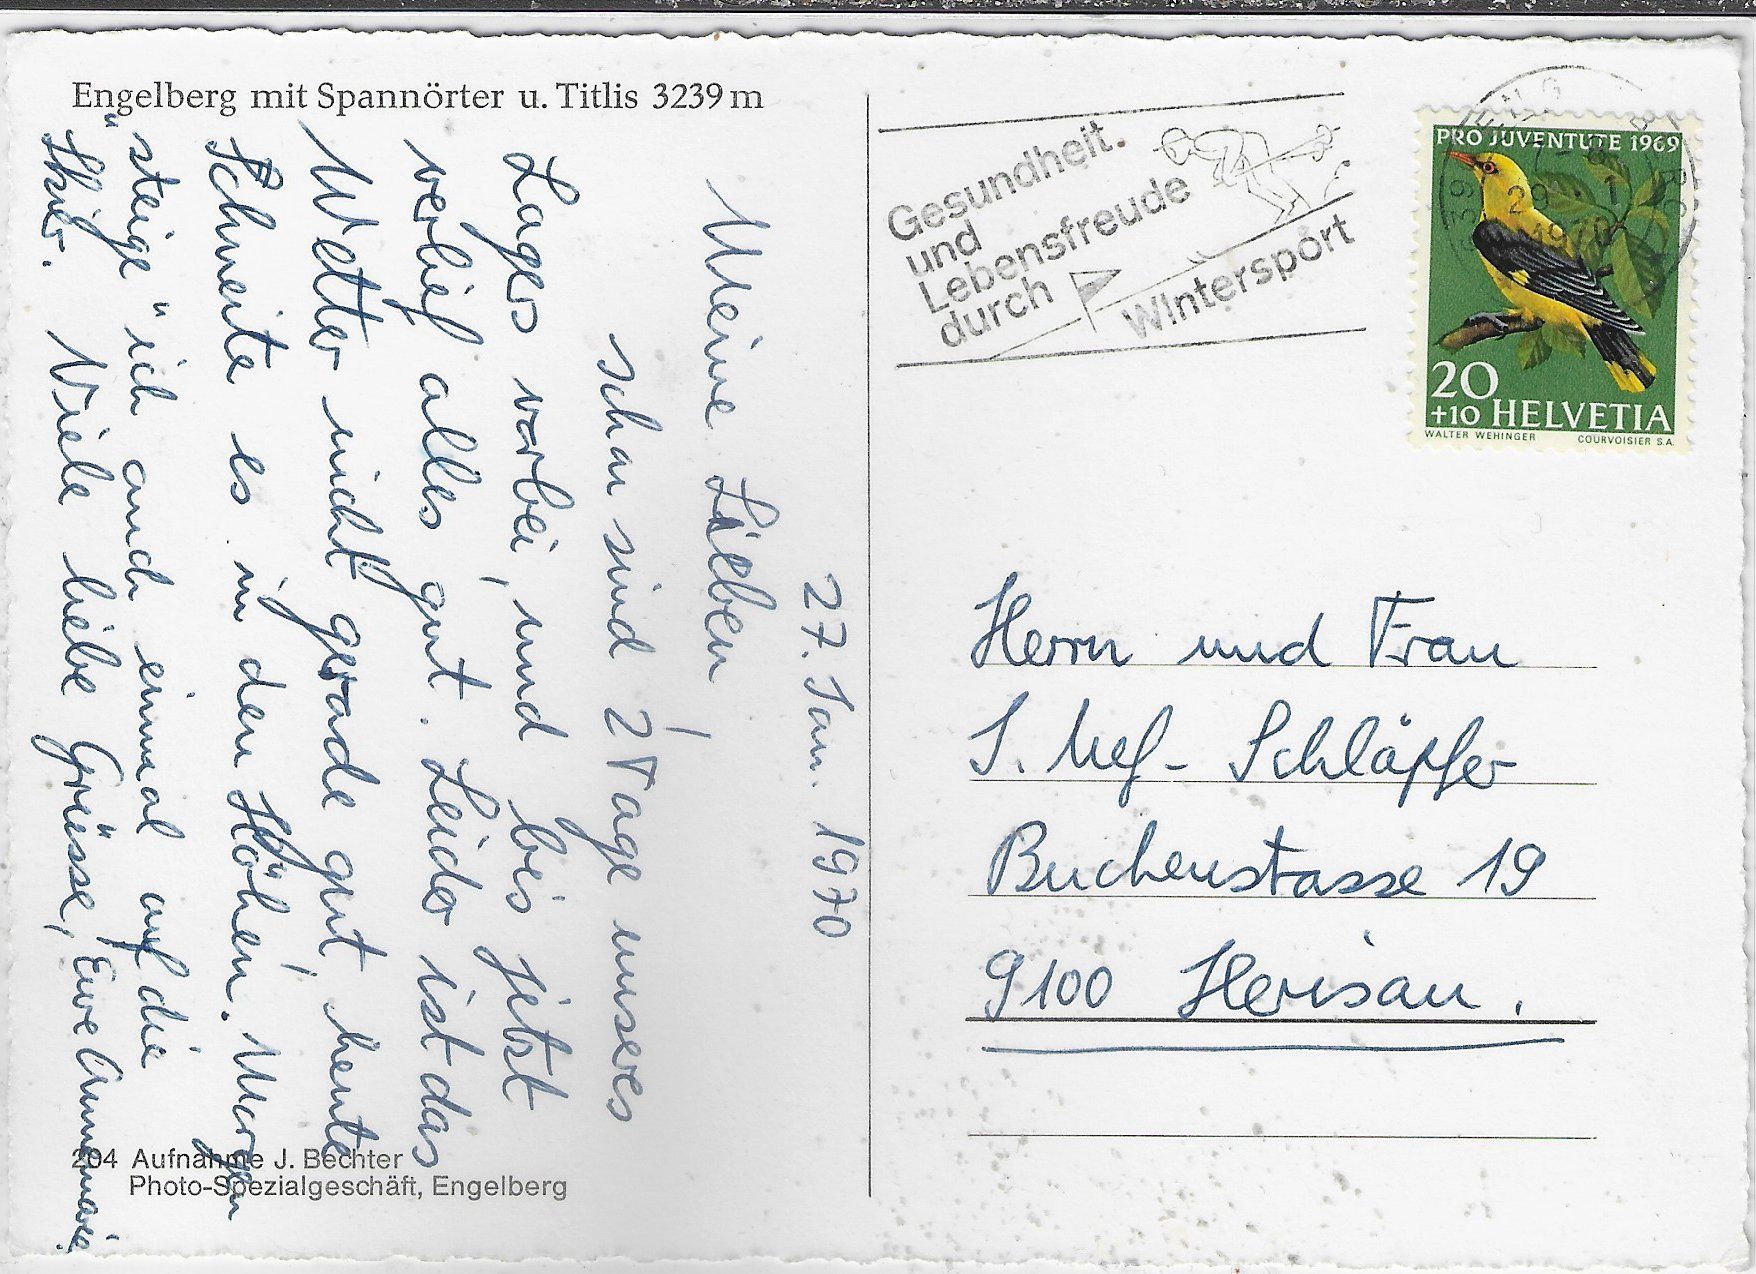 Engelberg mit Spannörter u. Titlis 3239 m
27. Jan. 1970
Meine Lieben!
schon sind 2 Tage unseres
Lagers vorbei, und bis jetzt
verlief alles gut. Leider ist das
Wetter nicht gerade gut, heute
schneite es in den Höhen. Morgen
"steige" ich auch einmal auf die
Skier. Viele liebe Grüsse, Eure Annamaria
204 Aufnahme J. Bechter
Photo-Spezialgeschäft, Engelberg
Gesundheit
und
Lebensfreude
durch Wintersport
PRO JUVENTUTE 1969
29. 1.
1970
20
+10 HELVETIA
WALTER WEHINGER COURVOISIER S.A.
Herrn und Frau
J. Nef-Schläpfer
Buchenstasse 19
9100 Herisau.